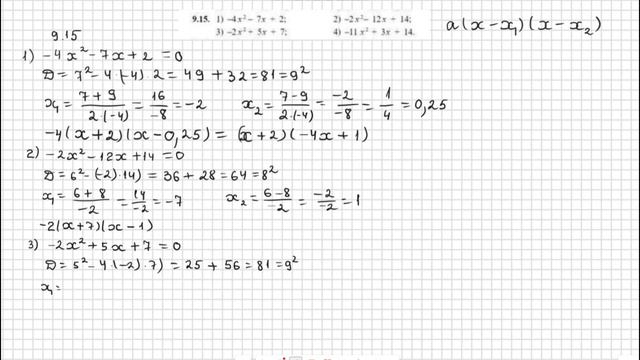 9.15. 1) -4x² - 7x + 2; 2) -2x² - 12x + 14;
3) -2x² + 5x + 7; 4) -11x² + 3x + 14.
a(x-x₁)(x-x₂)
9.15
1) -4x²-7x+2=0
D=7²-4·(-4)·2=49+32=81=9²
x₁=(7+9)/(2·(-4))=16/(-8)=-2 x₂=(7-9)/(2·(-4))=(-2)/(-8)=1/4=0,25
-4(x+2)(x-0,25)=(x+2)(-4x+1)
2) -2x²-12x+14=0
D=6²-(-2)·14)=36+28=64=8²
x₁=(6+8)/(-2)=14/(-2)=-7 x₂=(6-8)/(-2)=(-2)/(-2)=1
-2(x+7)(x-1)
3) -2x²+5x+7=0
D=5²-4·(-2)·7)=25+56=81=9²
x₁=